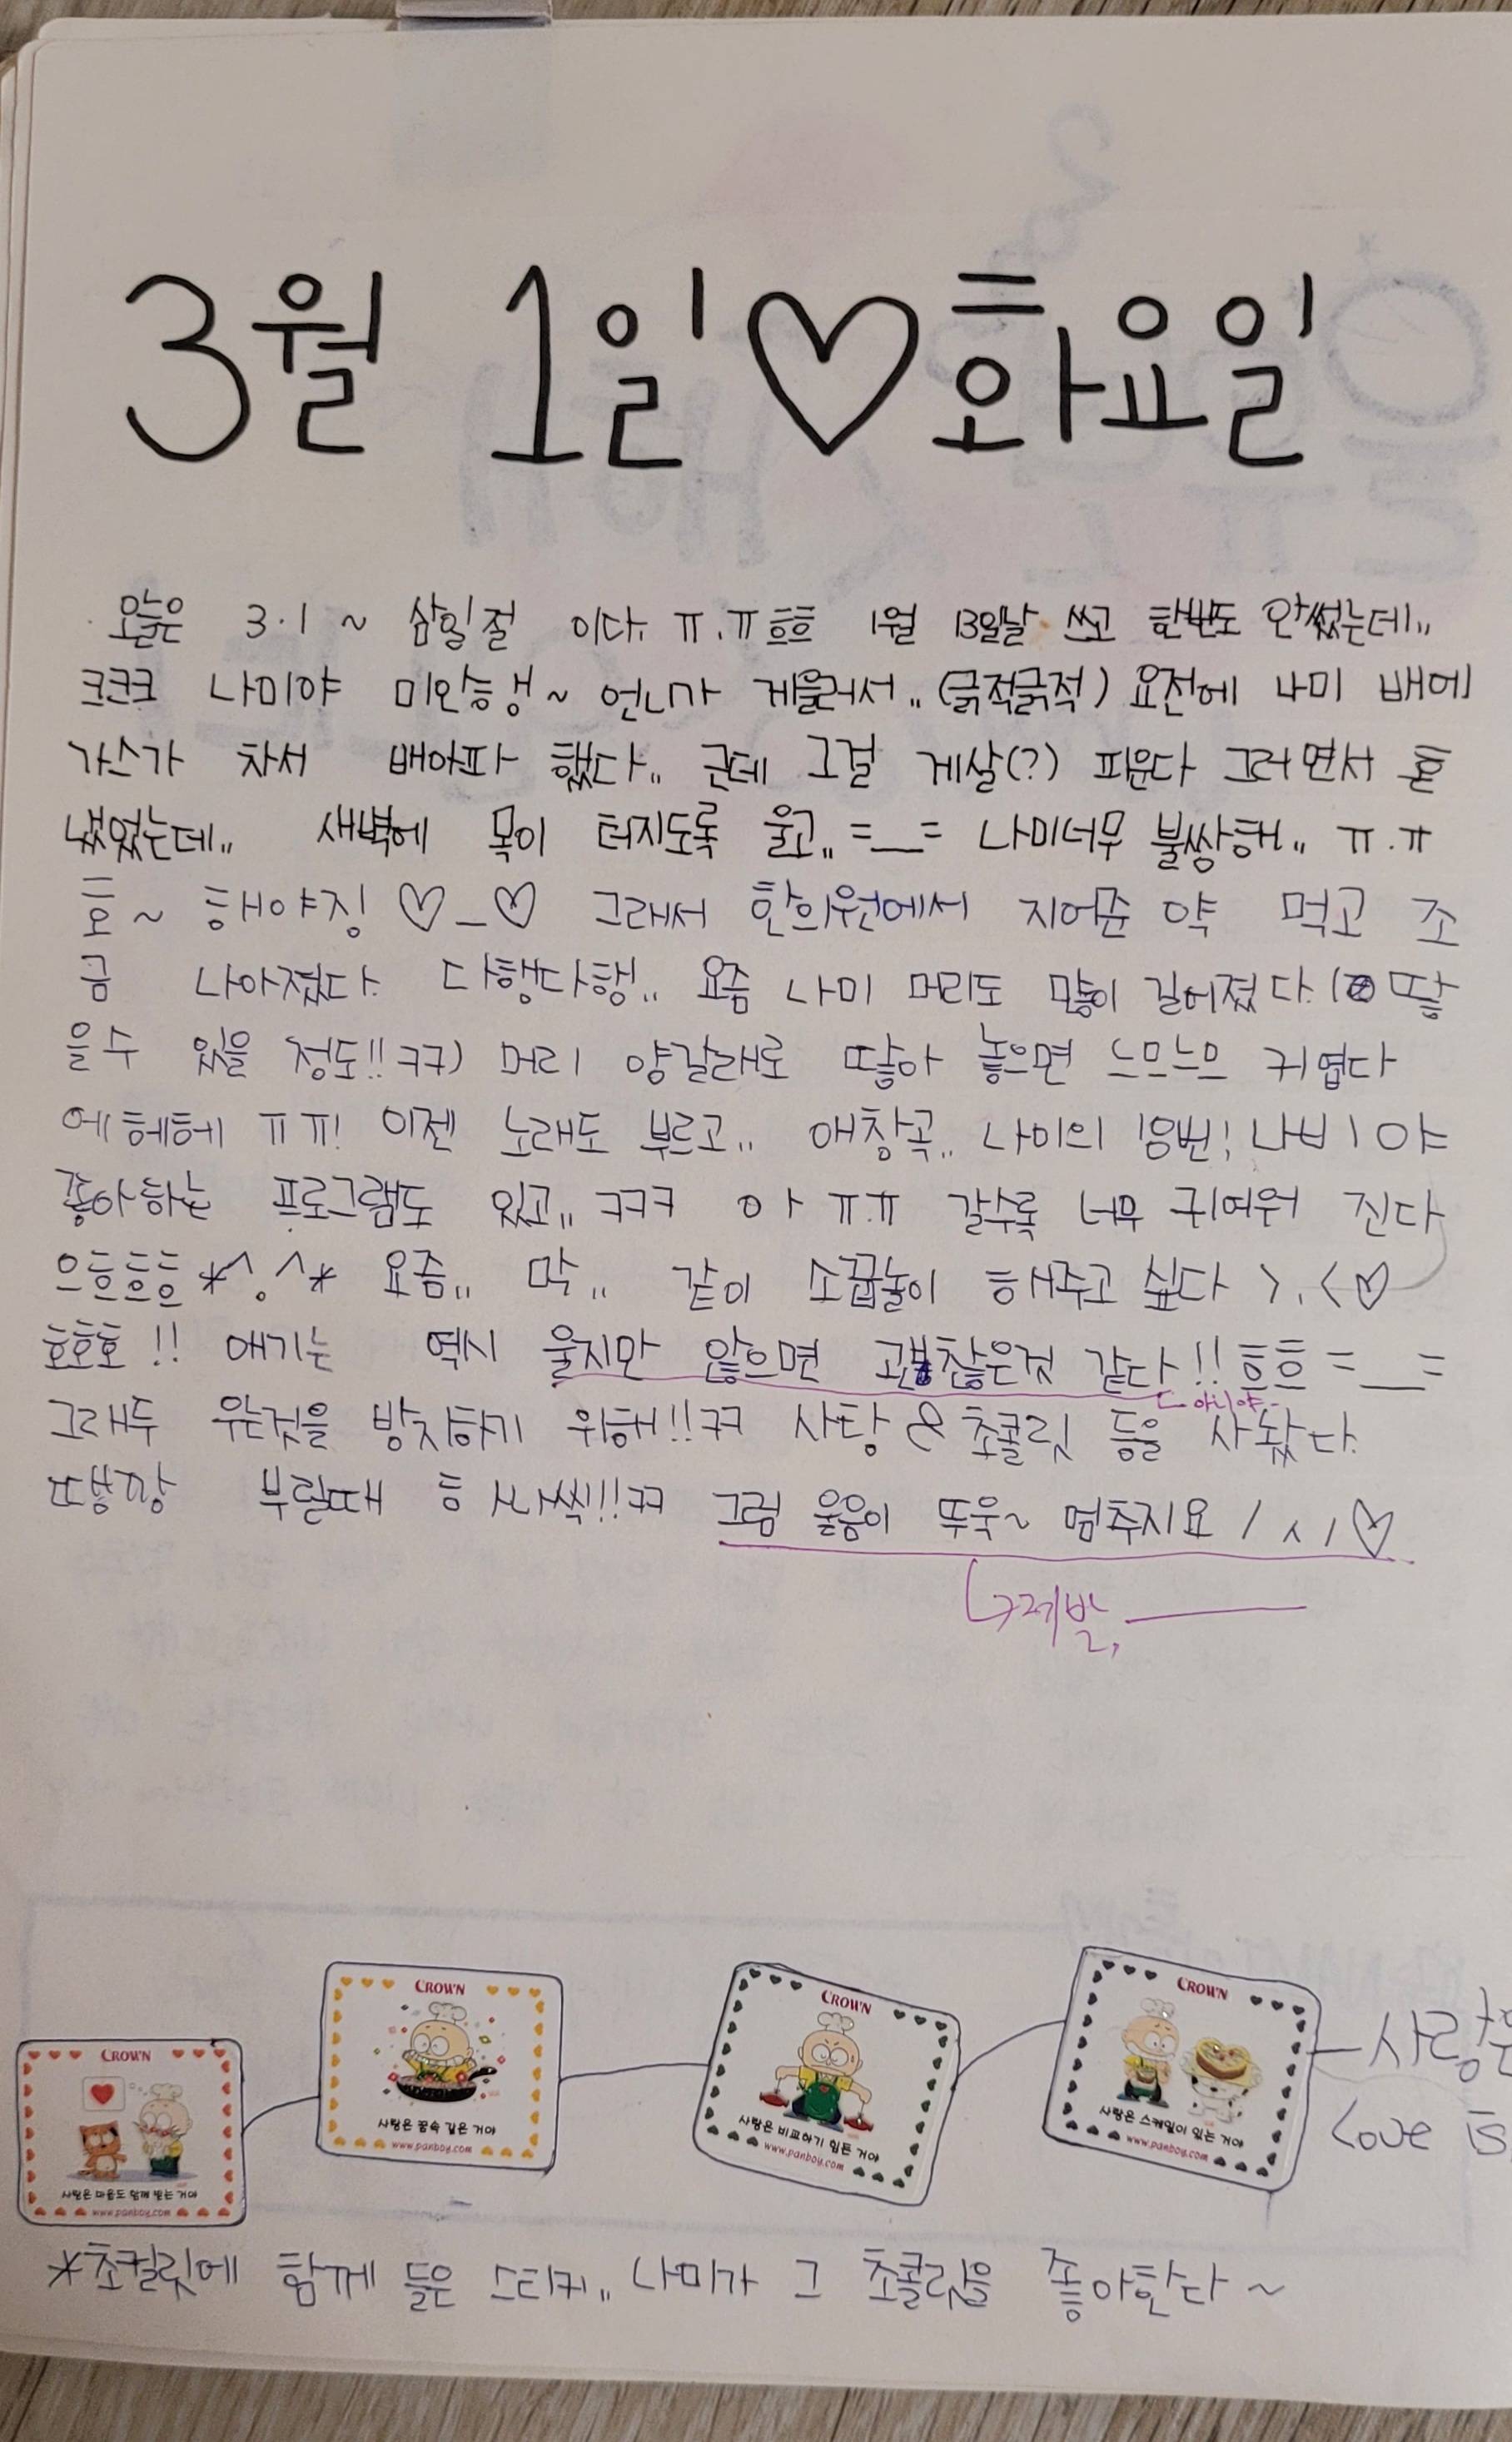 3월 1일♡화요일
오늘은 3·1 ~ 삼일절 이다. ㅠ.ㅠ흐흐 1월 13일날 쓰고 한번도 안썼는데..
크크크 나미야 미안행~ 언니가 게을러서.. (긁적긁적) 요전에 나미 배에
가스가 차서 배아파 했다.. 근데 그걸 게살(?) 피운다 그러면서 혼
냈었는데.. 새벽에 목이 터지도록 울고.. =__= 나미너무 불쌍해.. ㅠ.ㅠ
호~ 해야징 ♡_♡ 그래서 한의원에서 지어준 약 먹고 조
금 나아졌다. 다행다행.. 요즘 나미 머리도 많이 길어졌다. ( 땋
을수 있을 정도!! ㅋㅋ) 머리 양갈래로 땋아 놓으면 느므느므 귀엽다
에헤헤 ㅠㅠ! 이젠 노래도 부르고.. 애창곡.. 나미의 18번! 나비야
좋아하는 프로그램도 있고.. ㅋㅋㅋ 아 ㅠ.ㅠ 갈수록 너무 귀여워 진다
으흐흐흐 *^.^* 요즘.. 막.. 같이 소꿉놀이 해주고 싶다 >.<♡
호호호!! 애기는 역시 울지만 않으면 괜찮은것 같다!! 흐흐 =__=
아니야..
그래두 우는것을 방지하기 위해!! ㅋㅋ 사탕 & 초콜릿 등을 사놨다.
땡깡 부릴때 하나씩!!! ㅋㅋ 그럼 울음이 뚜욱~ 멈추지요 / ㅅ / ♡
제발,
CROWN
사랑은 마음도 함께 하는 거야
www.panboy.com
CROWN
사랑은 꿈속 같은 거야
www.panboy.com
CROWN
사랑은 비교하기 힘든 거야
www.panboy.com
CROWN
사랑은 스케일이 있는 거야
www.panboy.com
사랑은
Love is
*초컬릿에 함께 들은 스티커.. 나미가 그 초콜릿을 좋아한다~